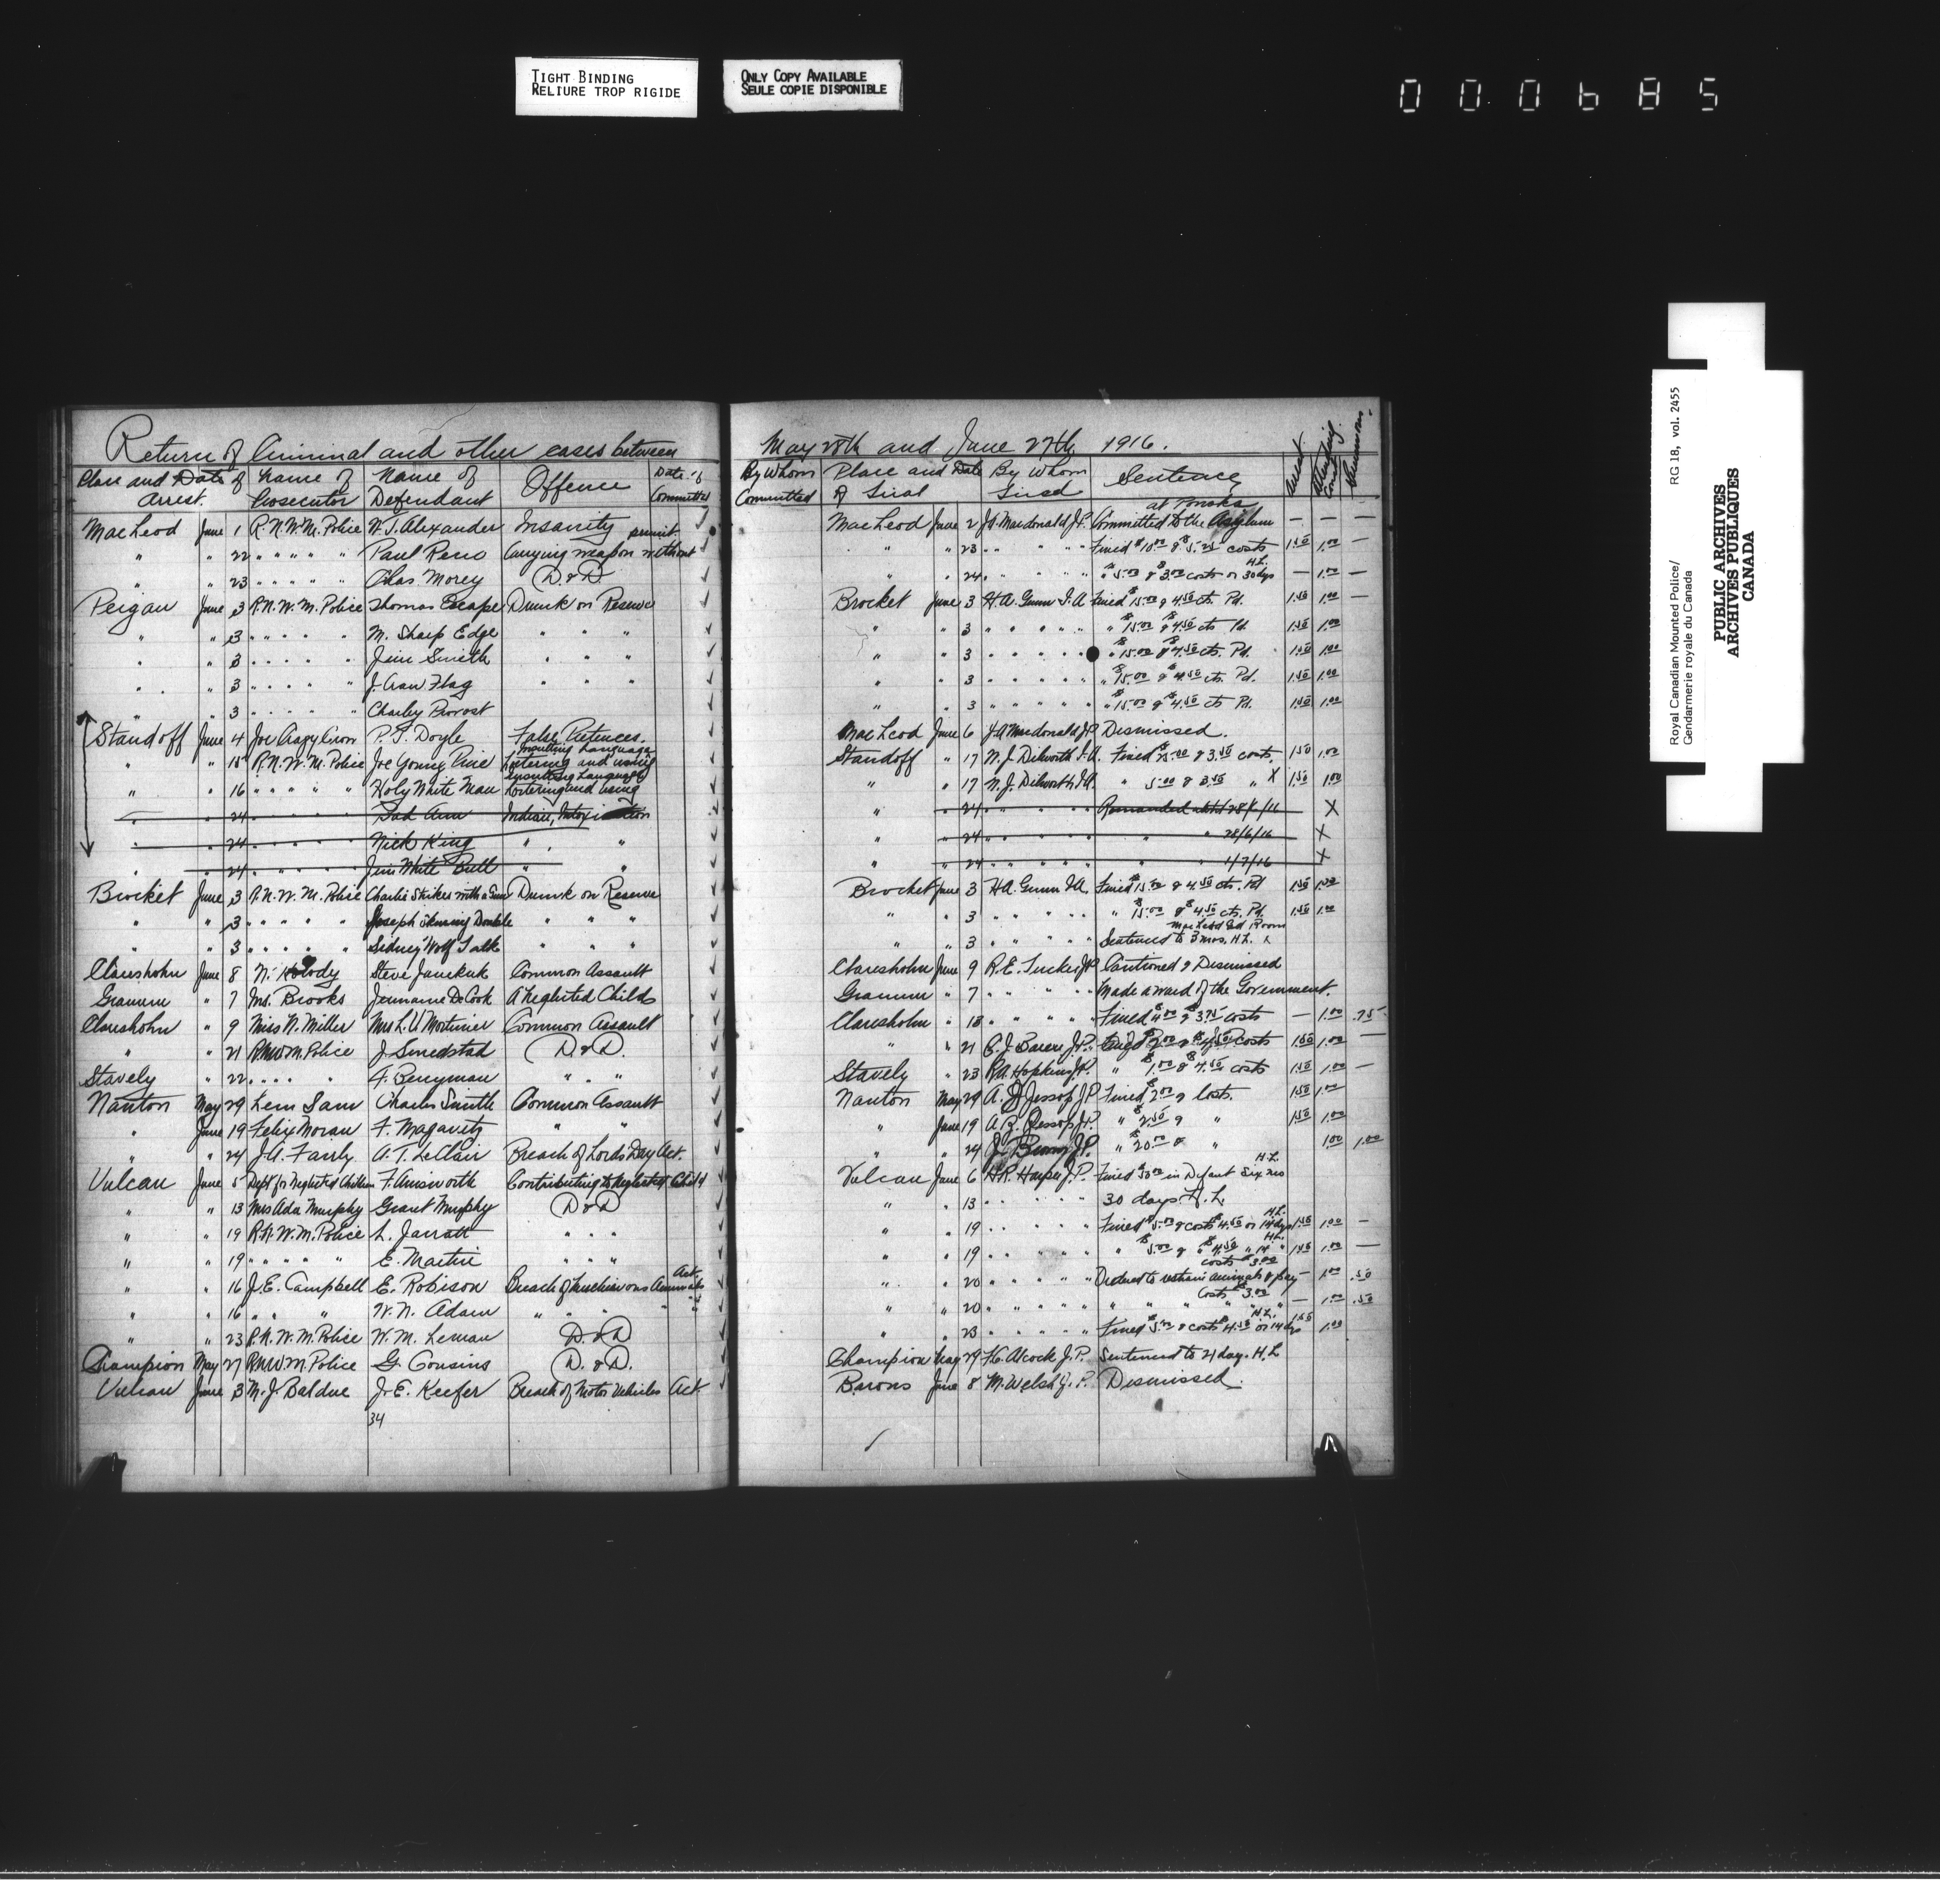 TIGHT BINDING
RELIURE TROP RIGIDE
ONLY COPY AVAILABLE
SEULE COPIE DISPONIBLE
000685
Royal Canadian Mounted Police/ RG 18, vol. 2455
Gendarmerie royale du Canada
PUBLIC ARCHIVES
ARCHIVES PUBLIQUES
CANADA
Return of Criminal and other cases between May 28th and June 27th 1916.
Place and Date of Arrest. Name of Prosecutor Name of Defendant Offence Date of Committal By Whom Committed Place and Date of Trial By Whom Tried Sentence Arrest Attending Court Summons
MacLeod June 1 R.N.W.M. Police W.J. Alexander Insanity MacLeod June 2 J.A. Macdonald J.P. Committed to the Asylum at Ponoka — — —
" " 22 " " " " Paul Reno Carrying weapon without permit " " 23 " " " " Fined $10.00 & $5.25 costs 1.50 1.00 —
" " 23 " " " " Chas Morey D. & D " " 24 " " " " " 5.00 & 3.00 costs or 30 dys H.L. — 1.00 —
Peigan June 3 R.N.W.M. Police Thomas Escape Drunk on Reserve Brocket June 3 H.A. Gunn I.A Fined $15.00 & 4.50 cts. Pd. 1.50 1.00 —
" " 3 " " " " M. Sharp Edge " " " " " 3 " " " " " $15.00 & $4.50 cts Pd. 1.50 1.00
" " 3 " " " " Jim Smith " " " " " 3 " " " " " $15.00 & $4.50 cts. Pd. 1.50 1.00
" " 3 " " " " J. Crow Flag " " " " " 3 " " " " " $15.00 & $4.50 cts. Pd. 1.50 1.00
" " 3 " " " " Charley Provost " " 3 " " " " " $15.00 & $4.50 cts Pd. 1.50 1.00
Standoff June 4 Joe P.J. Doyle False Pretences. MacLeod June 6 J.A Macdonald J.P Dismissed.
" " 15 R.N.W.M. Police Joe Young Pine Loitering and using insulting Language Standoff " 17 N.J. Dilworth I.A. Fined $5.00 & 3.50 costs 1.50 1.00
" " 16 " " " " Holy White Man Loitering and using insulting Language " " 17 N.J. Dilworth I.A. " 5.00 & 3.50 " X 1.50 1.00
" " 24 " " " " Indian, Intoxication " " 24 " " " " Remanded until 28/6/16 X
" " 24 " " " " Nick King " " " " 24 " " " " " " 28/6/16 X
" " 24 " " " " Jim White Bull " " " " 24 " " " " " " 1/7/16 X
Brocket June 3 R.N.W.M. Police Charlie Strikes with a Gun Drunk on Reserve Brocket June 3 H.A. Gunn I.A. Fined $15.00 & 4.50 cts. Pd 1.50 1.00
" " 3 " " " " Joseph Double " " " " " 3 " " " " " $15.00 & $4.50 cts. Pd. 1.50 1.00
" " 3 " " " " Sidney Wolf Tail " " " " " 3 " " " " Sentenced to 3 mos. H.L. MacLeod Gd Room
Claresholm June 8 N. Steve Common Assault Claresholm June 9 R.E. Tucker J.P Cautioned & Dismissed
Granum " 7 Mrs. Brooks Jermaine DeCook A Neglected Child Granum " 7 " " " " Made a ward of the Government.
Claresholm " 9 Miss N. Miller Mrs L.V. Mortimer Common Assault Claresholm " 18 " " " " Fined $4.00 & 3.75 costs — 1.00 .75
" " 21 RNWM Police J. Smedstad D. & D. " " 21 J.P. Fined $2.00 & $4.50 costs 1.50 1.00 —
Stavely " 22 " " " " F. Berryman " " Stavely " 23 R.A. Hopkins J.P. " $1.00 & $4.50 costs 1.50 1.00 —
Nanton May 29 Lem Sam Charles Smith Common Assault Nanton May 29 A. Jessop J.P Fined $2.00 & Costs. 1.50 1.00
" June 19 Felix Moran F. Magavitz " " " June 19 A. Jessop J.P. " $2.50 & " 1.50 1.00
" " 24 J.A. Fairly A.T. LeClair Breach of Lords Day Act. " " 24 J. J.P. " $20.00 & " 1.00 1.00
Vulcan June 5 Dept for Neglected Children F. Ainsworth Contributing to Neglected Child Vulcan June 6 H.R. Harper J.P. Fined $50.00 in Default Six mos H.L.
" " 13 Mrs Ada Murphy Grant Murphy D & D " " 13 " " " " 30 days H.L.
" " 19 R.N.W.M. Police L. Jarratt " " " " " 19 " " " " Fined $5.00 & costs $4.50 or 14 dys H.L. 1.50 1.00 —
" " 19 " " " " E. Martin " " " " " 19 " " " " " $5.00 & " $4.50 " 14 " H.L. 1.50 1.00 —
" " 16 J.E. Campbell E. Robison Breach of Mischievous Animals Act. " " 20 " " " " Ordered to restrain animals & pay costs $3.00 — 1.00 .50
" " 16 " " " W.N. Adam " " " " " " 20 " " " " " " " " costs $3.00 — 1.00 .50
" " 23 R.N.W.M. Police W.M. Leman D. & D " " 23 " " " " Fined $5.00 & costs $4.50 or 14 dys H.L. 1.50 1.00
Champion May 27 RNWM. Police G. Cousins D. & D. Champion May 29 Alcock J.P. Sentenced to 21 day. H.L
Vulcan June 3 M.J. Baldue J.E. Keefer Breach of Motor Vehicles Act Barons June 8 M. Welsh J.P. Dismissed.
34